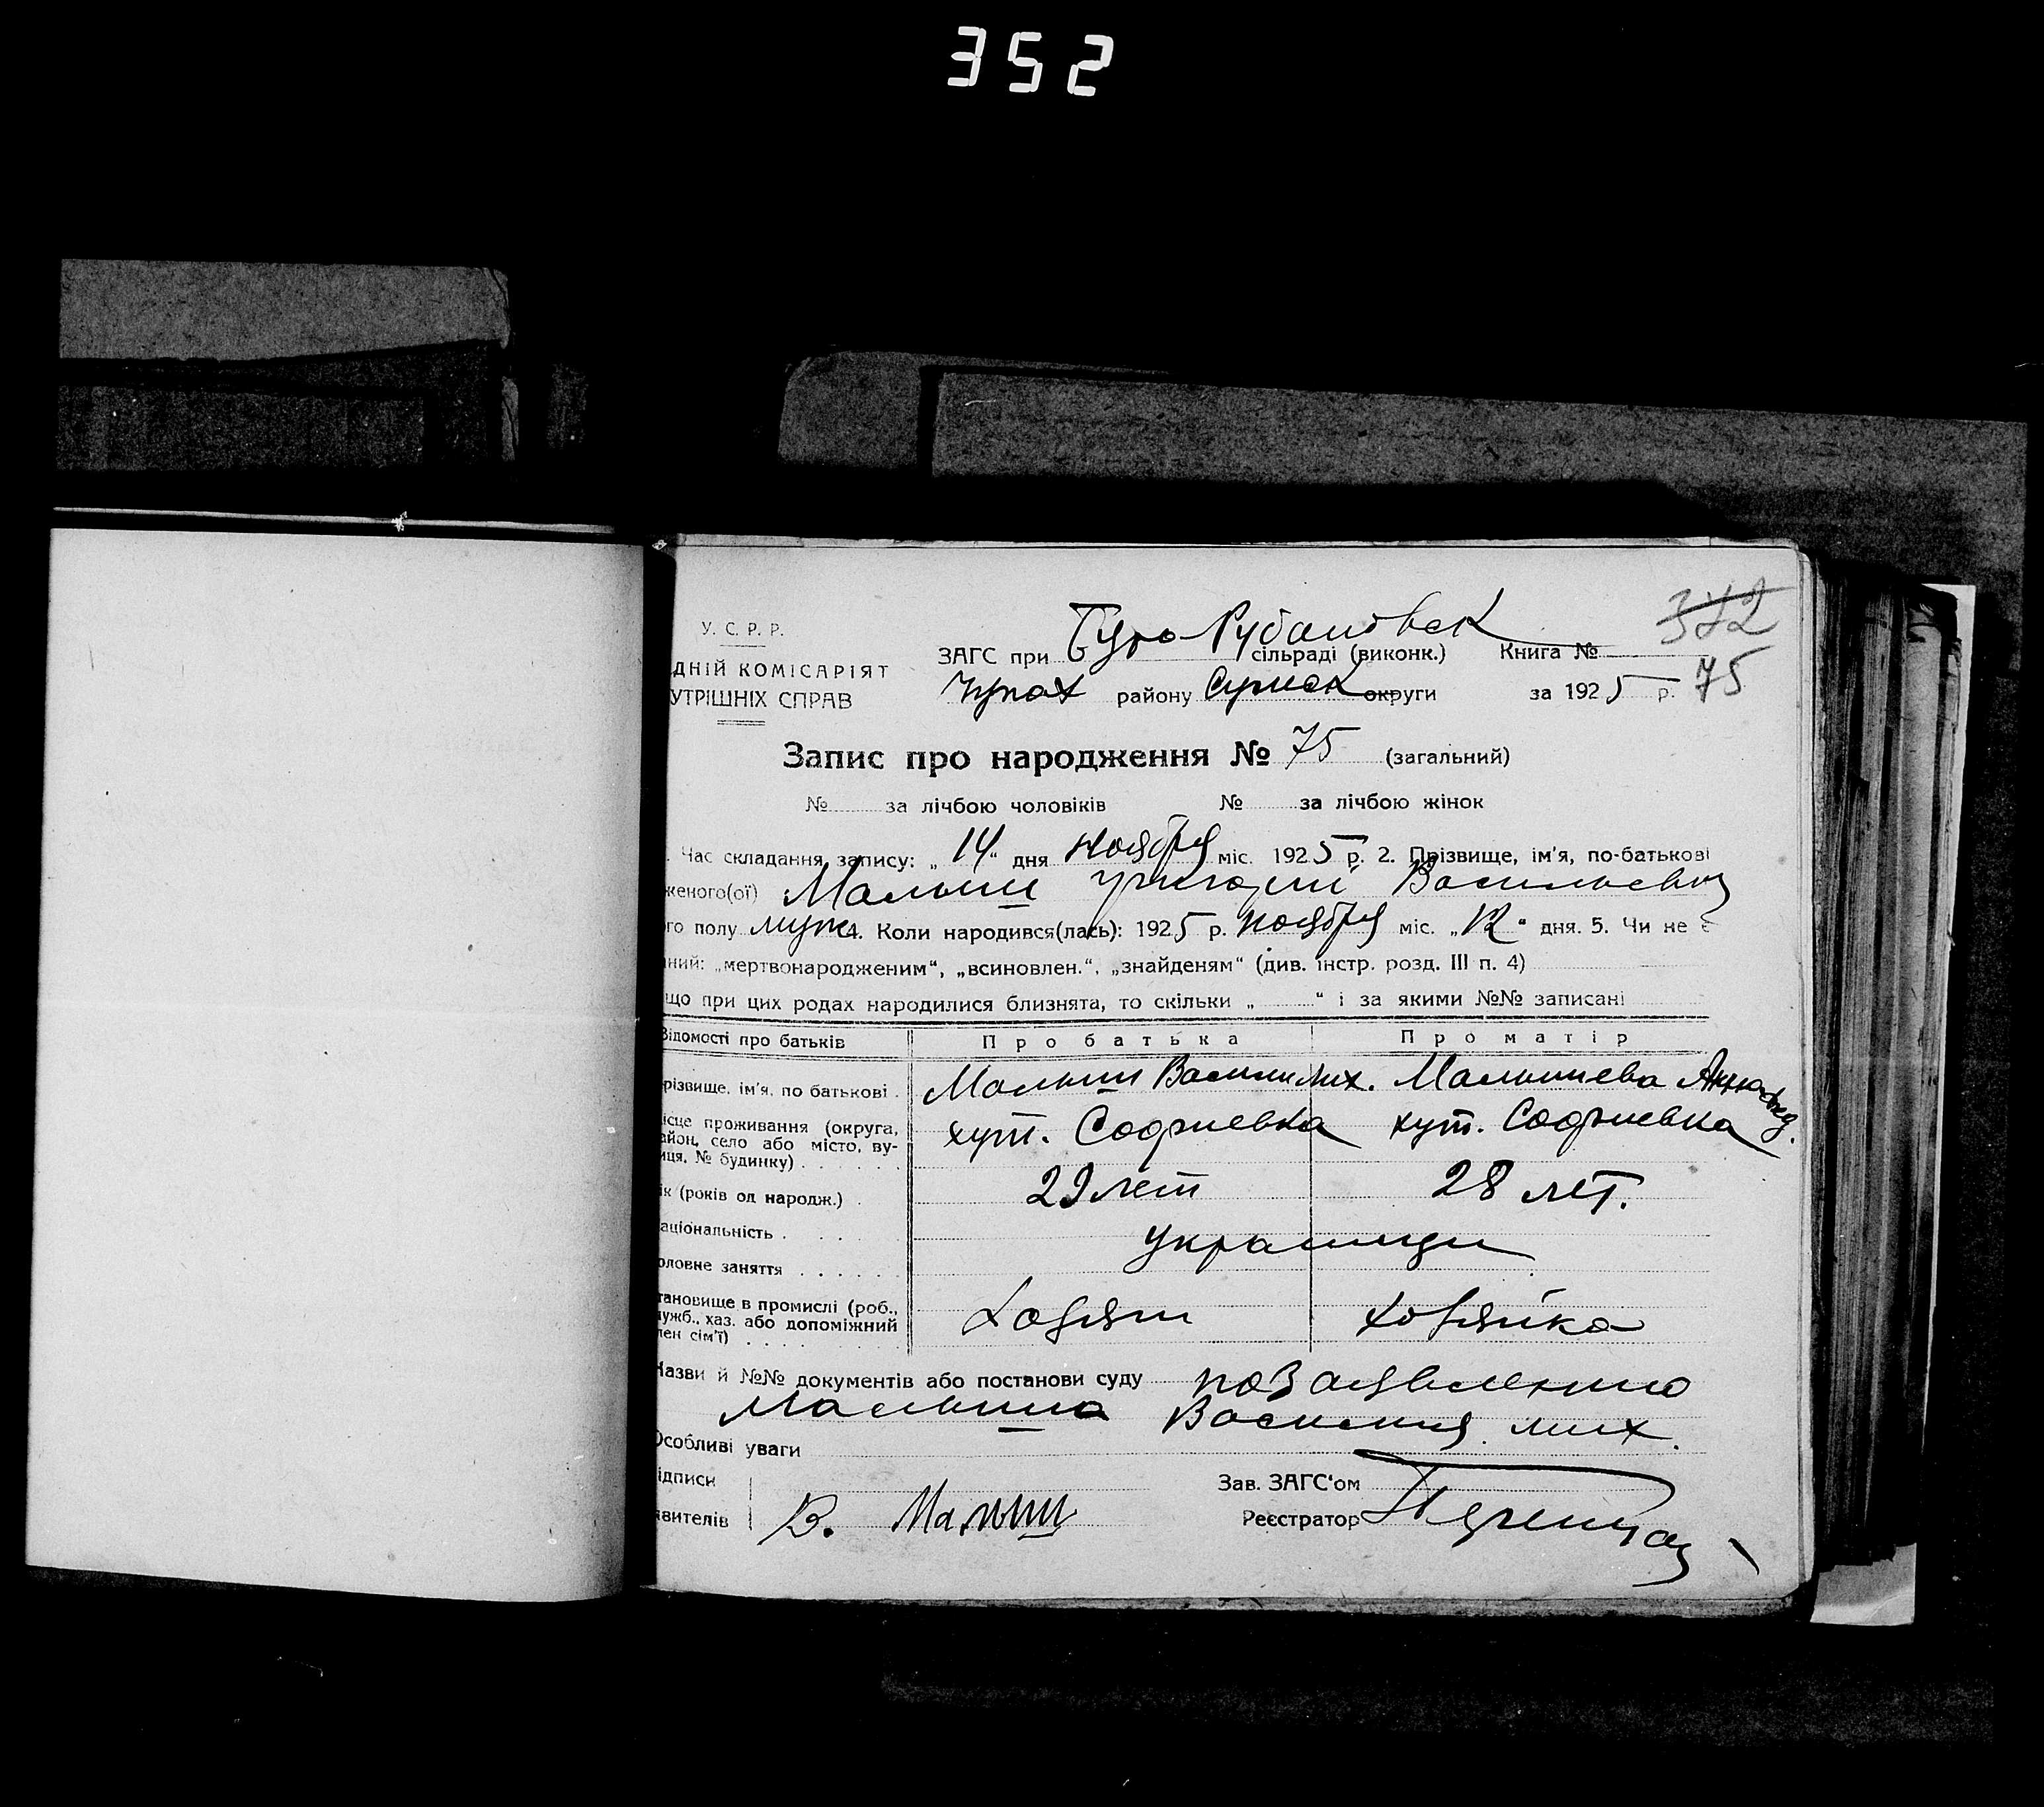 352
372
У. С. Р. Р.
ДНІЙ КОМІСАРІЯТ
УТРІШНІХ СПРАВ
ЗАГС при Рубановск сільраді (виконк.) Книга №
району Сумск округи за 1925 р. 75
Запис про народження № 75 (загальний)
№ за лічбою чоловіків № за лічбою жінок
. Час складання запису: „14“ дня ноября міс. 1925 р. 2. Прізвище, ім'я, по-батькові
женого(ої) Малыш Григорий Васильевич
го полу муж 4. Коли народився(лась): 1925 р. ноября міс. „12“ дня. 5. Чи не є
ний: „мертвонародженим“, „всиновлен.“, „знайденям“ (див. інстр. розд. III п. 4)
що при цих родах народилися близнята, то скільки „ “ і за якими №№ записані
Відомості про батьків Про батька Про матір
різвище, ім'я, по батькові . Малыш Васили Мих. Малышева Анна Фед.
ісце проживання (округа, район, село або місто, ву-
иця, № будинку) . . . . . хут. Софиевка хут. Софиевка
ік (років од народж.) . 29 лет 28 лет.
аціональність . . . . украинци
оловне заняття . . . . . .
тановище в промислі (роб.,
лужб., хаз. або допоміжний
лен сім'ї) . . . . Хозяин хозяйка
Назви й №№ документів або постанови суду по заявлению
Малыша Василия Мих.
Особливі уваги
ідписи Зав. ЗАГС'ом
явителів В. Малыш Реєстратор